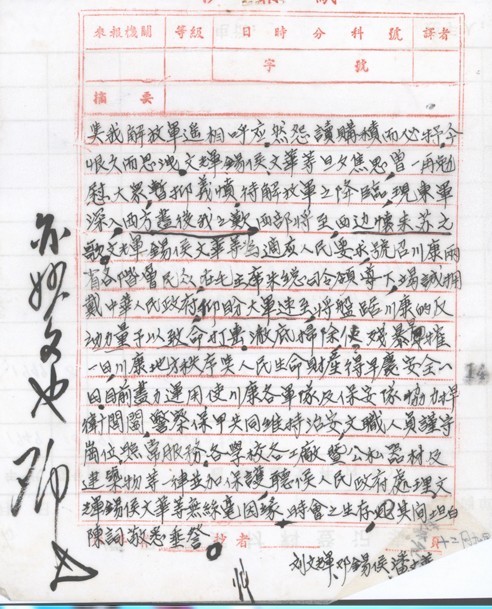 來報機關 等級 日 時 分 科 號 譯者
字 號
摘 要
與我解放軍進相呼应然怨讟積而心抒今
恨久而思洩文輝錫侯文華等旦夕焦思曾一再勉
慰大眾暫抑義憤待解放軍之降臨現東軍
深入西方盡後我之歎西部將至西边懷未苏之
歌文輝錫侯文華等當適应人民要求號召川康兩
省各階層民众在毛主席朱總司令領導下竭誠擁
戴中華人民政府抑盼大軍速至將盤踞川康的反
动力量予以致命打击澈底掃除俾殘暴早摧
一日川康地方秩序與人民生命財產得早慶安全一
日目前盡力運用使川康各軍隊及保安隊協力捍
衛閭閻警察保甲共同維持治安文職人員謹守
崗位照常服務各學校各工廠暨公私器材及
建築物等一律並加保護聽候人民政府處理文
輝錫侯文華等無絲毫因緣時會之生存其间坦白
陳詞敬悉垂詧
刘文輝邓錫侯潘文華
亦妙文也